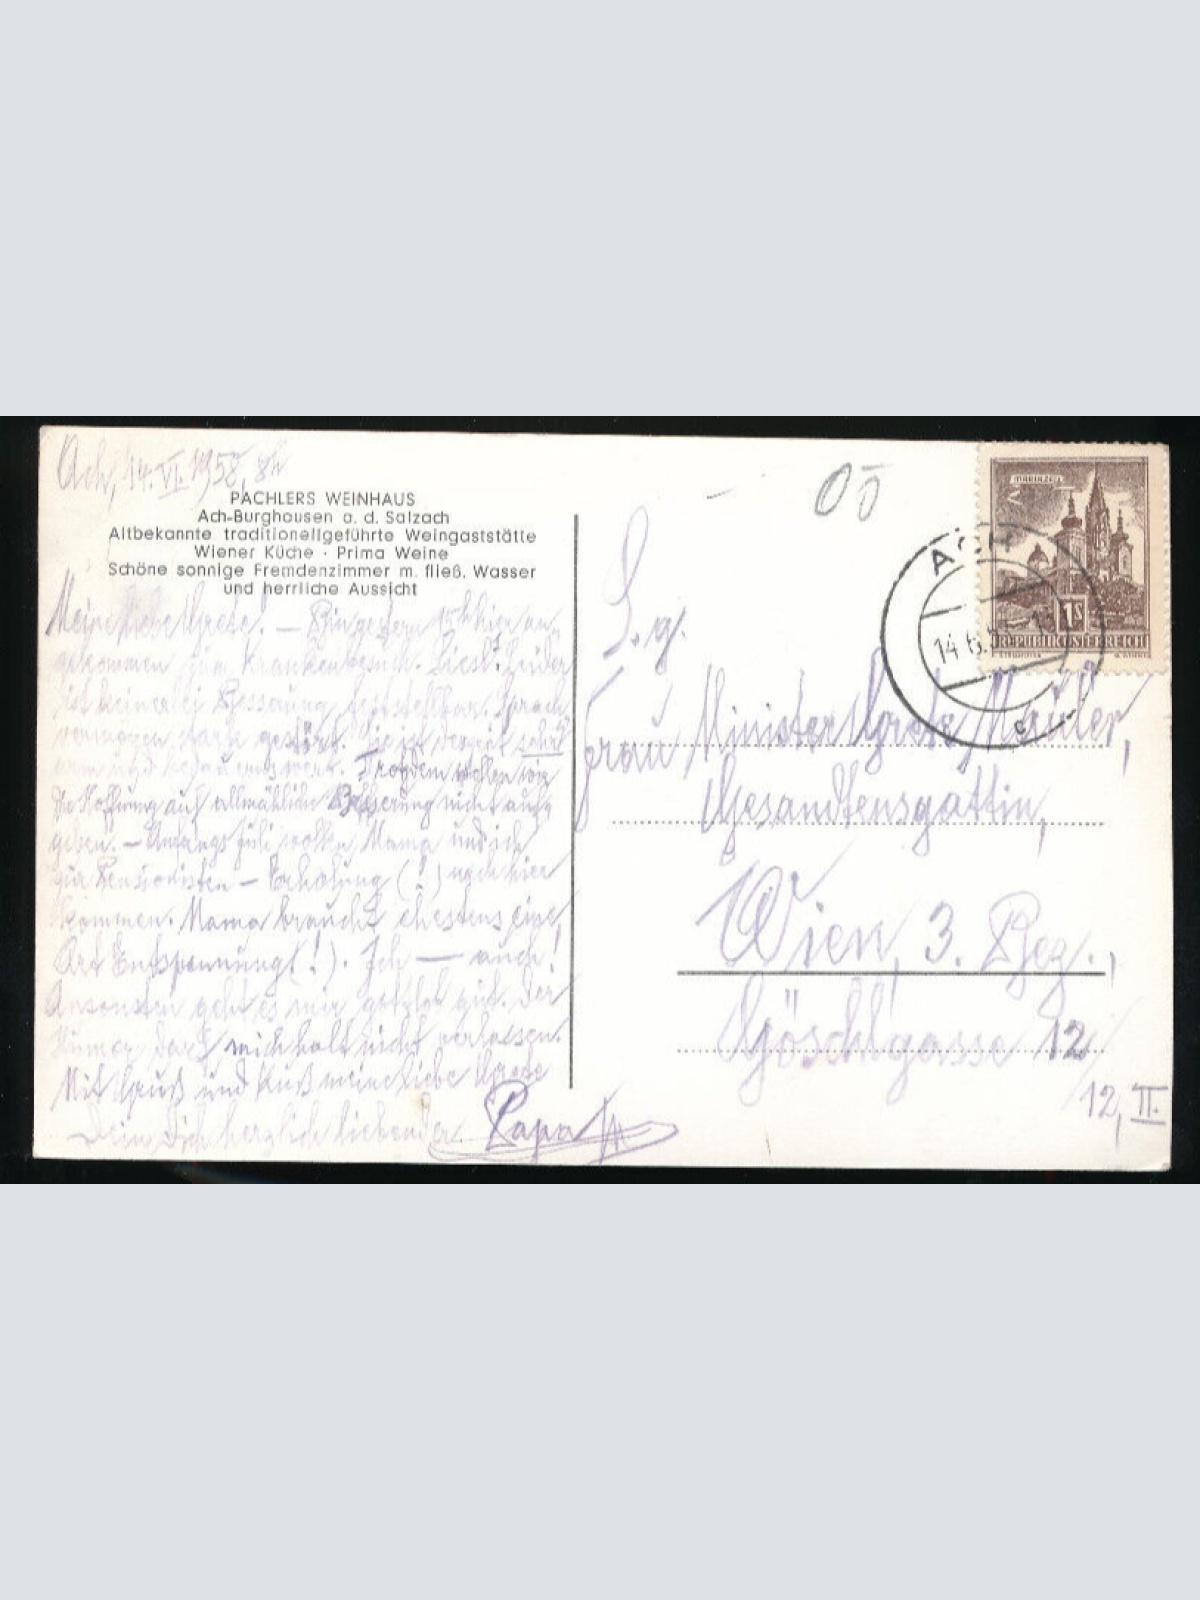 Ach, 14. VI. 1958, 8h
PACHLERS WEINHAUS
Ach-Burghausen a. d. Salzach
Altbekannte traditionellgeführte Weingaststätte
Wiener Küche · Prima Weine
Schöne sonnige Fremdenzimmer m. fließ. Wasser
und herrliche Aussicht
Meine liebe Grete! — Bin gestern 15h hier an-
gekommen zum Krankenbesuch. Leider
ist keinerlei Besserung feststellbar. Sprach-
vermögen stark gestört. Sie ist derzeit sehr
arm und bedauernswert. Trotzdem wollen wir
die Hoffnung auf allmähliche Besserung nicht auf-
geben. — Anfangs Juli wollen Mama und ich
zur Pensionisten — Erholung (!) nach hier
kommen. Mama braucht ehestens eine
Art Entspannung (!). Ich — auch!
Ansonsten geht es mir gottlob gut. Der
Humor darf mich halt nicht verlassen.
Mit Gruß und Kuß meine liebe Grete
Dein Dich herzlich liebender Papa
00
MARIAZELL
1S
REPUBLIK ÖSTERREICH
ACH
14.6.5
S. g.
Frau Minister Grete
Gesandtensgattin,
Wien, 3. Bez.,
Göschlgasse 12
12, II.